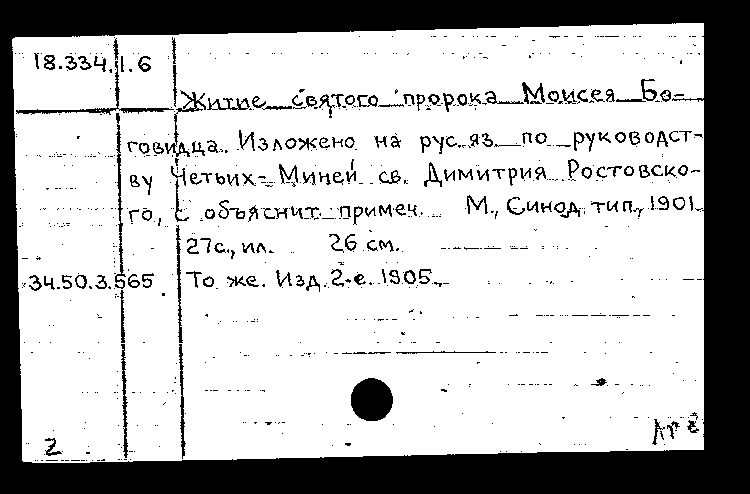 18.334.1.6
Житие святого пророка Моисея Бо-
говидца. Изложено на рус.яз. по руководст-
ву Четьих-Миней св. Димитрия Ростовско-
го, с объяснит. примеч. М., Синод. тип., 1901.
27с., ил. 26 см.
34.50.3.565 То же. Изд. 2-е. 1905.
Z